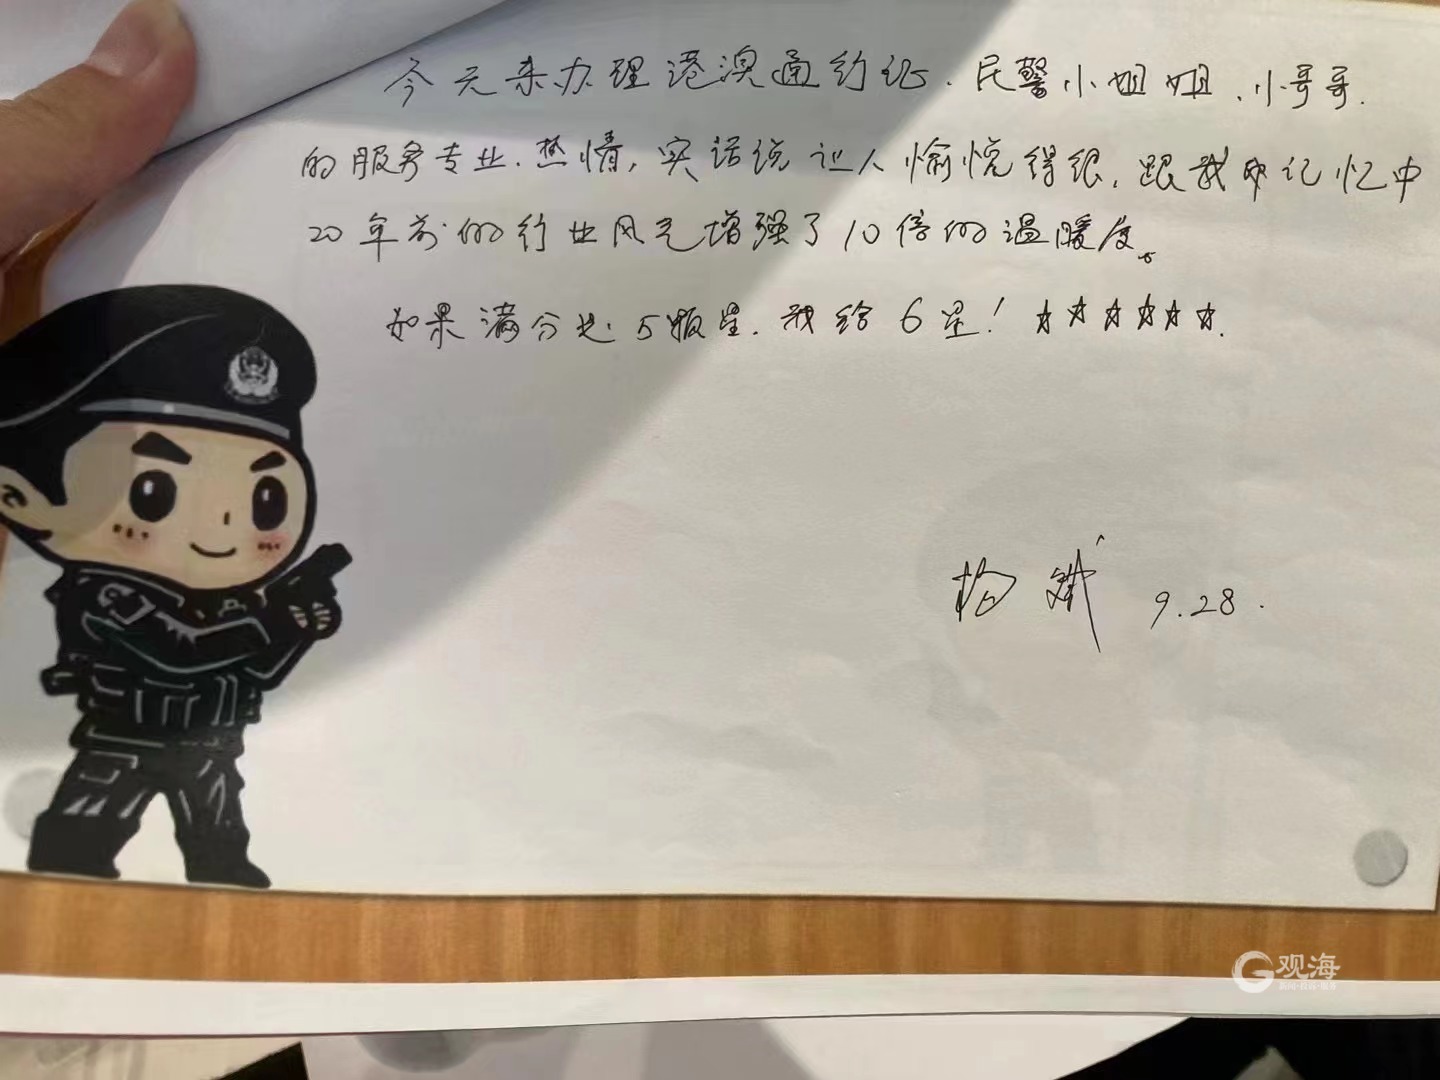 今天来办理港澳通行证．民警小姐姐、小哥哥．
的服务专业．热情，实话说 让人愉悦得很，跟我印记忆中
20年前的行业风气增强了10倍的温暖度。
如果满分是5颗星．我给6星！☆☆☆☆☆☆．
杨斌 9.28．
G观海
新闻·政务·服务